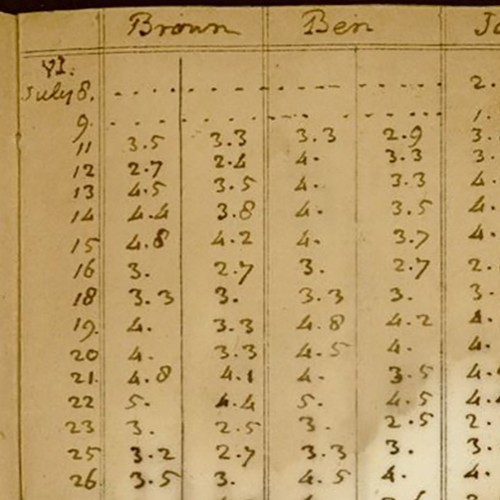 Brown Ben
VI.
July 8. 2.
9. 1.
11 3.5 3.3 3.3 2.9 3.
12 2.7 2.4 4. 3.3 3.
13 4.5 3.5 4. 3.3 4.
14 4.4 3.8 4. 3.5 4.
15 4.8 4.2 4. 3.7 4.
16 3. 2.7 3. 2.7 2.
18 3.3 3. 3.3 3. 3.
19. 4. 3.3 4.8 4.2 4.
20 4. 3.3 4.5 4. 4.
21. 4.8 4.1 4. 3.5 4.
22 5. 4.4 5. 4.5 4.
23 3. 2.5 3. 2.5 2.
25 3.2 2.7 3.3 3. 3.
26 3.5 3. 4.5 4. 4.